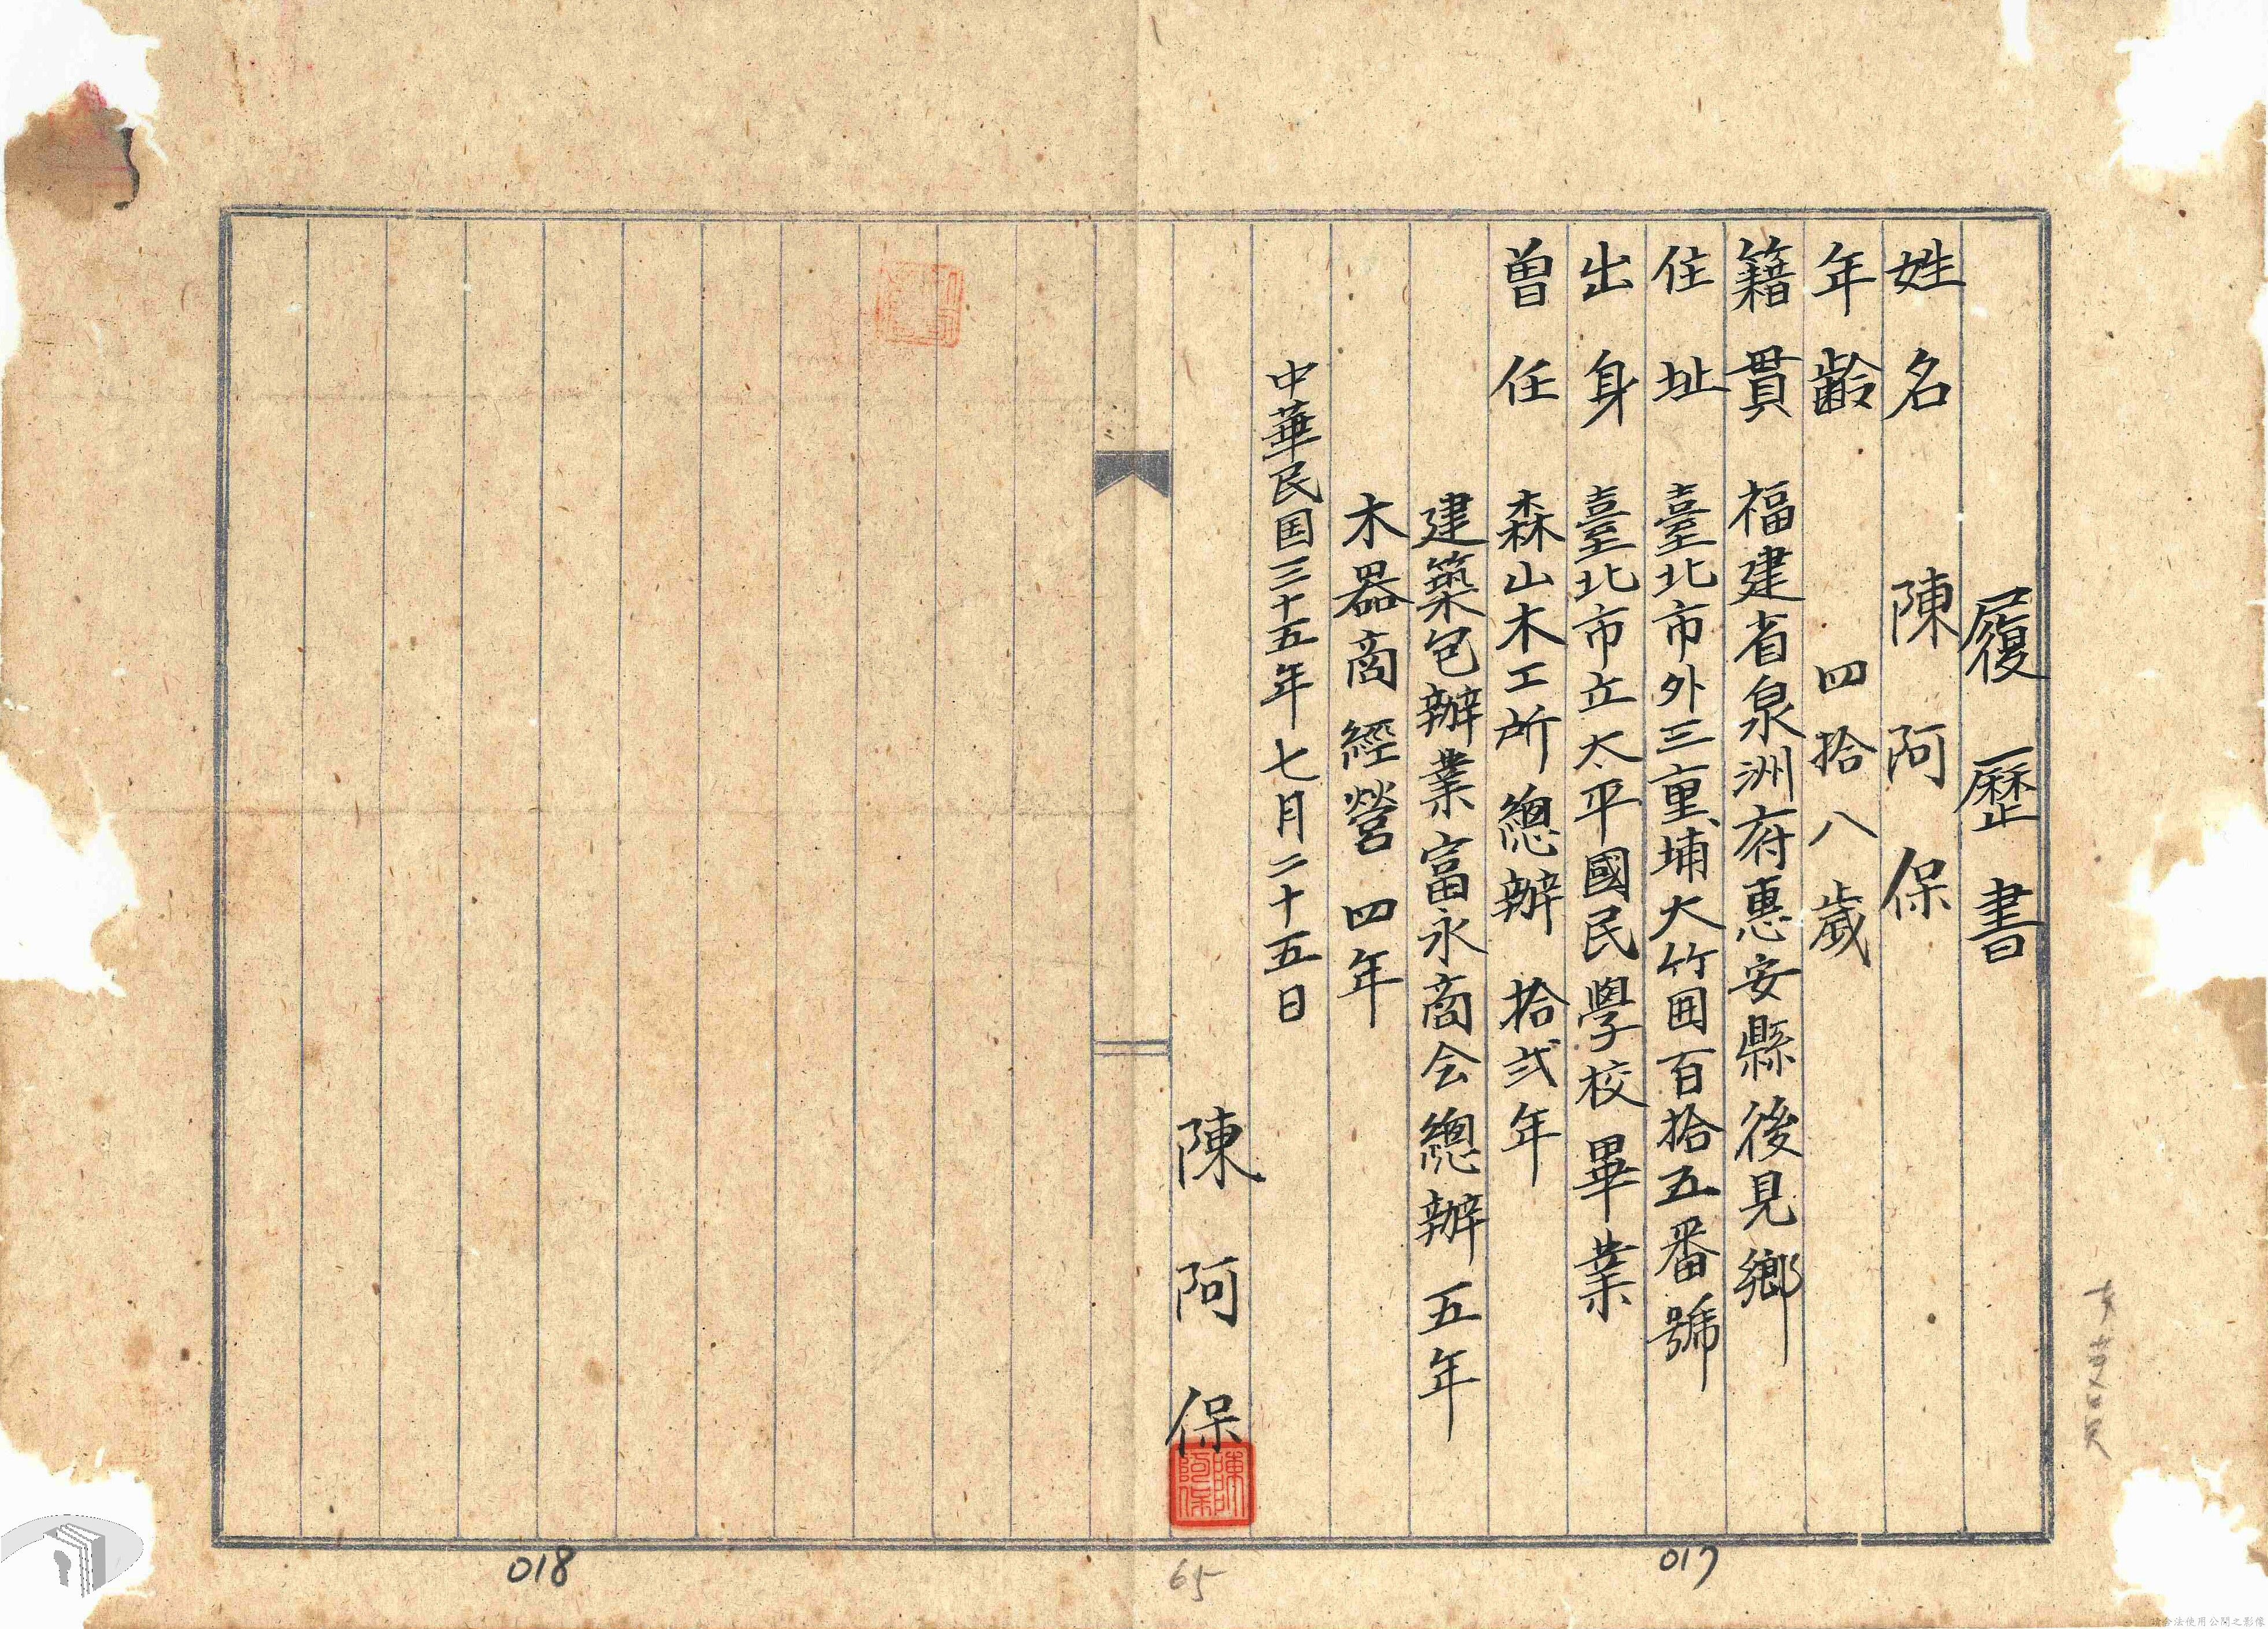 履歷書
姓名 陳阿保
年齡 四拾八歲
籍貫 福建省泉洲府惠安縣後見鄉
住址 臺北市外三重埔大竹囲百拾五番號
出身 臺北市立太平國民學校畢業
曾任 森山木工所總辦 拾弍年
建築包辦業富永商会總辦 五年
木器商 經營 四年
中華民国三十五年七月二十五日
陳阿保
陳阿保
017
65
018